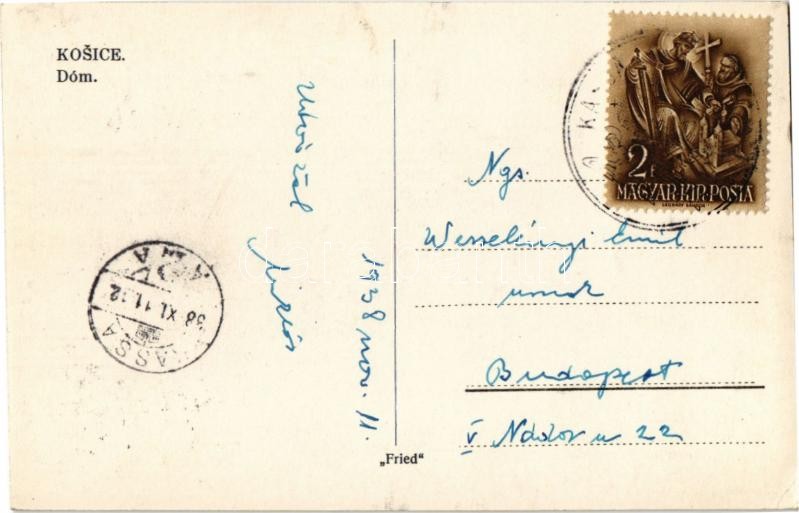 KOŠICE.
Dóm.
Miklós
1938 nov. 11.
KASSA
38 XI. 11. 12
„Fried“
2f
MAGYAR·KIR·POSTA
KAS
Ngs.
Wesselényi Emil
urnak
Budapest
V Nádor u 22